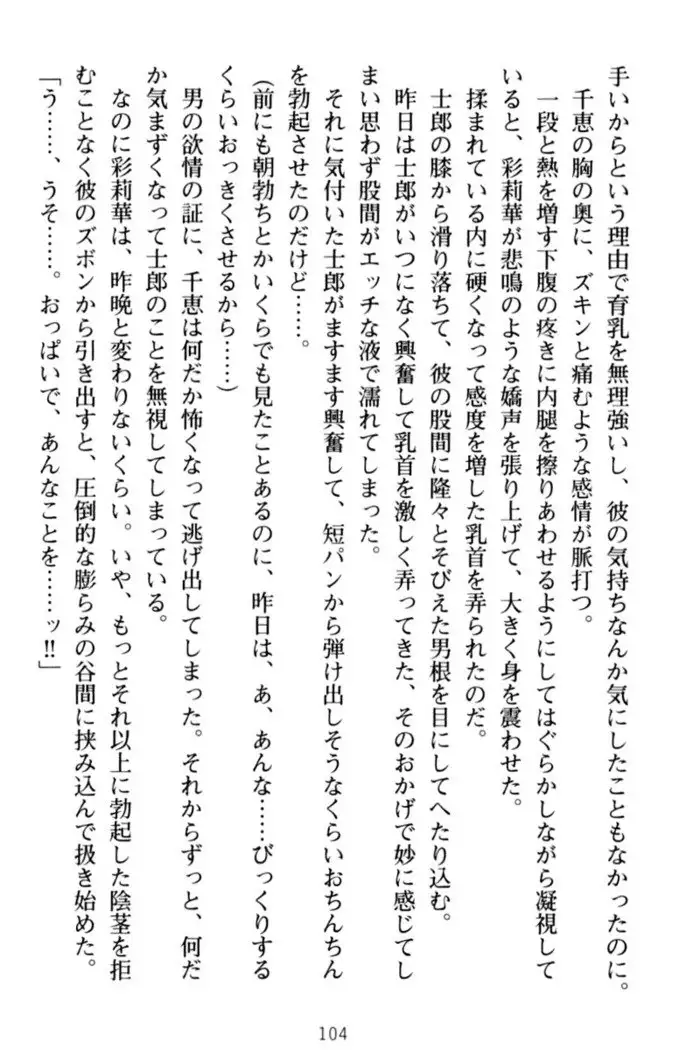 手いからという理由で育乳を無理強いし、彼の気持ちなんか気にしたこともなかったのに。
千恵の胸の奥に、ズキンと痛むような感情が脈打つ。
一段と熱を増す下腹の疼きに内腿を擦りあわせるようにしてはぐらかしながら凝視して
いると、彩莉華が悲鳴のような嬌声を張り上げて、大きく身を震わせた。
揉まれている内に硬くなって感度を増した乳首を弄られたのだ。
士郎の膝から滑り落ちて、彼の股間に隆々とそびえた男根を目にしてへたり込む。
昨日は士郎がいつになく興奮して乳首を激しく弄ってきた、そのおかげで妙に感じてし
まい思わず股間がエッチな液で濡れてしまった。
それに気付いた士郎がますます興奮して、短パンから弾け出しそうなくらいおちんちん
を勃起させたのだけど……。
(前にも朝勃ちとかいくらでも見たことあるのに、昨日は、あ、あんな……びっくりする
くらいおっきくさせるから……)
男の欲情の証に、千恵は何だか怖くなって逃げ出してしまった。それからずっと、何だ
か気まずくなって士郎のことを無視してしまっている。
なのに彩莉華は、昨晩と変わりないくらい。いや、もっとそれ以上に勃起した陰茎を拒
むことなく彼のズボンから引き出すと、圧倒的な膨らみの谷間に挟み込んで扱き始めた。
「う……、うそ……。おっぱいで、あんなことを……ッ!!」
104